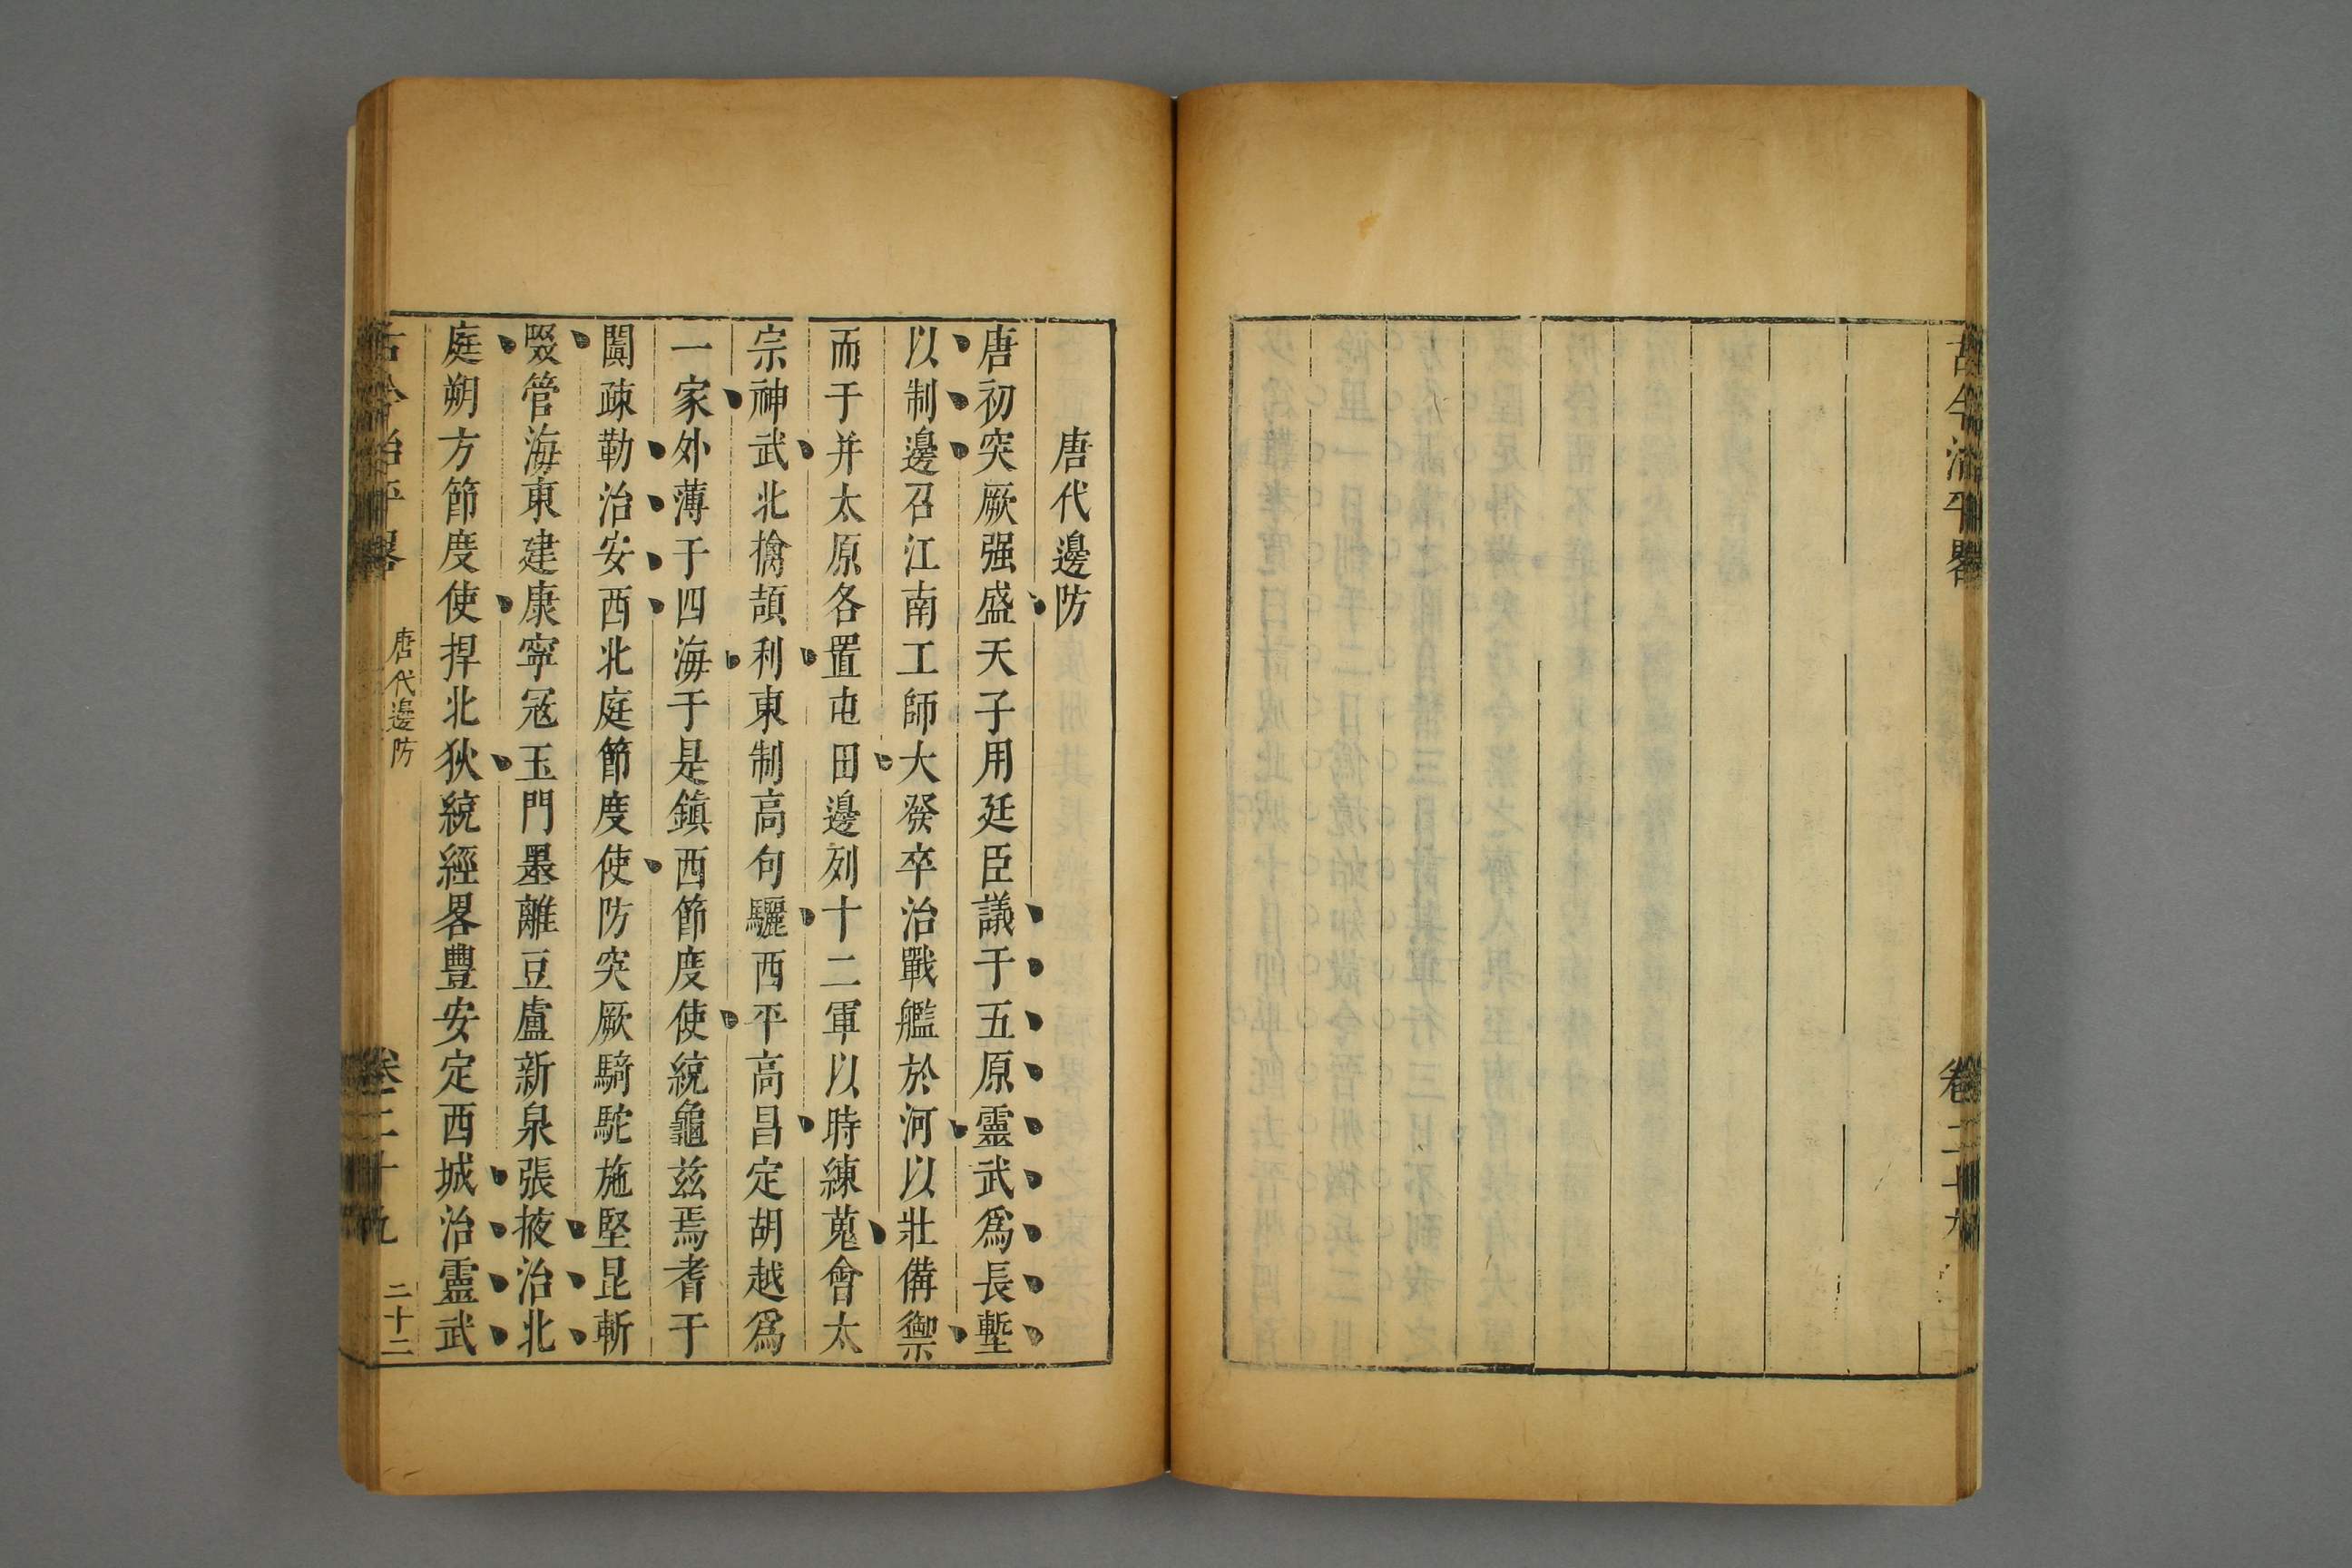 古今治平畧
卷二十九
唐代邊防
唐初突厥强盛天子用廷臣議于五原靈武爲長塹
以制邊召江南工師大發卒治戰艦於河以壯備禦
而于并太原各置屯田邊列十二軍以時練蒐會太
宗神武北擒頡利東制高句驪西平高昌定胡越爲
一家外薄于四海于是鎭西節度使統龜茲焉耆于
闐疎勒治安西北庭節度使防突厥騎駝施堅昆斬
啜管海東建康寧冦玉門墨離豆盧新泉張掖治北
庭朔方節度使捍北狄統經畧豐安定西城治靈武
古今治平畧
唐代邊防
卷二十九
二十二